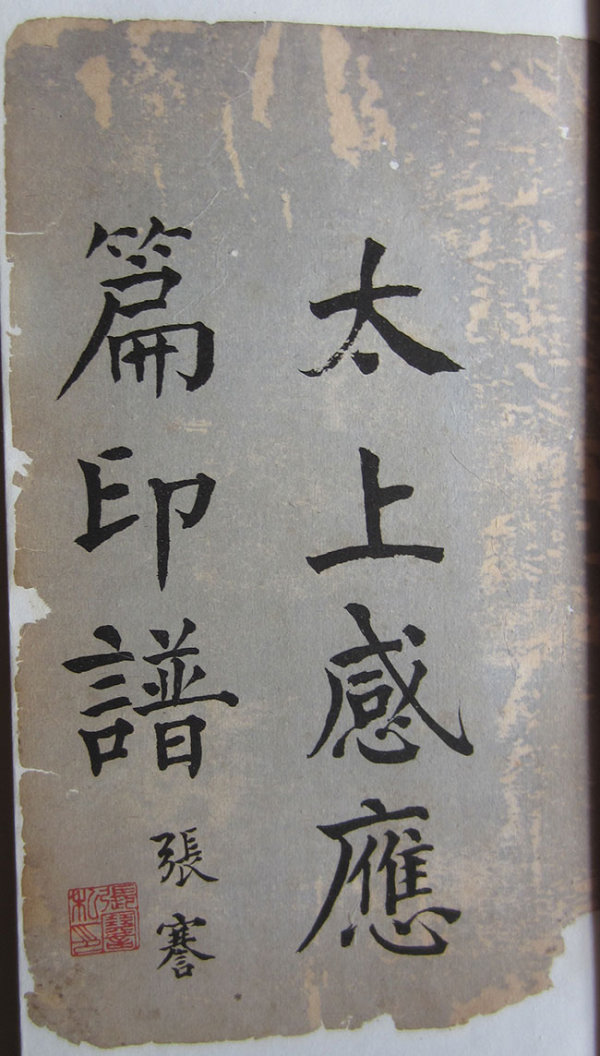 太上感應
篇印譜
張謇